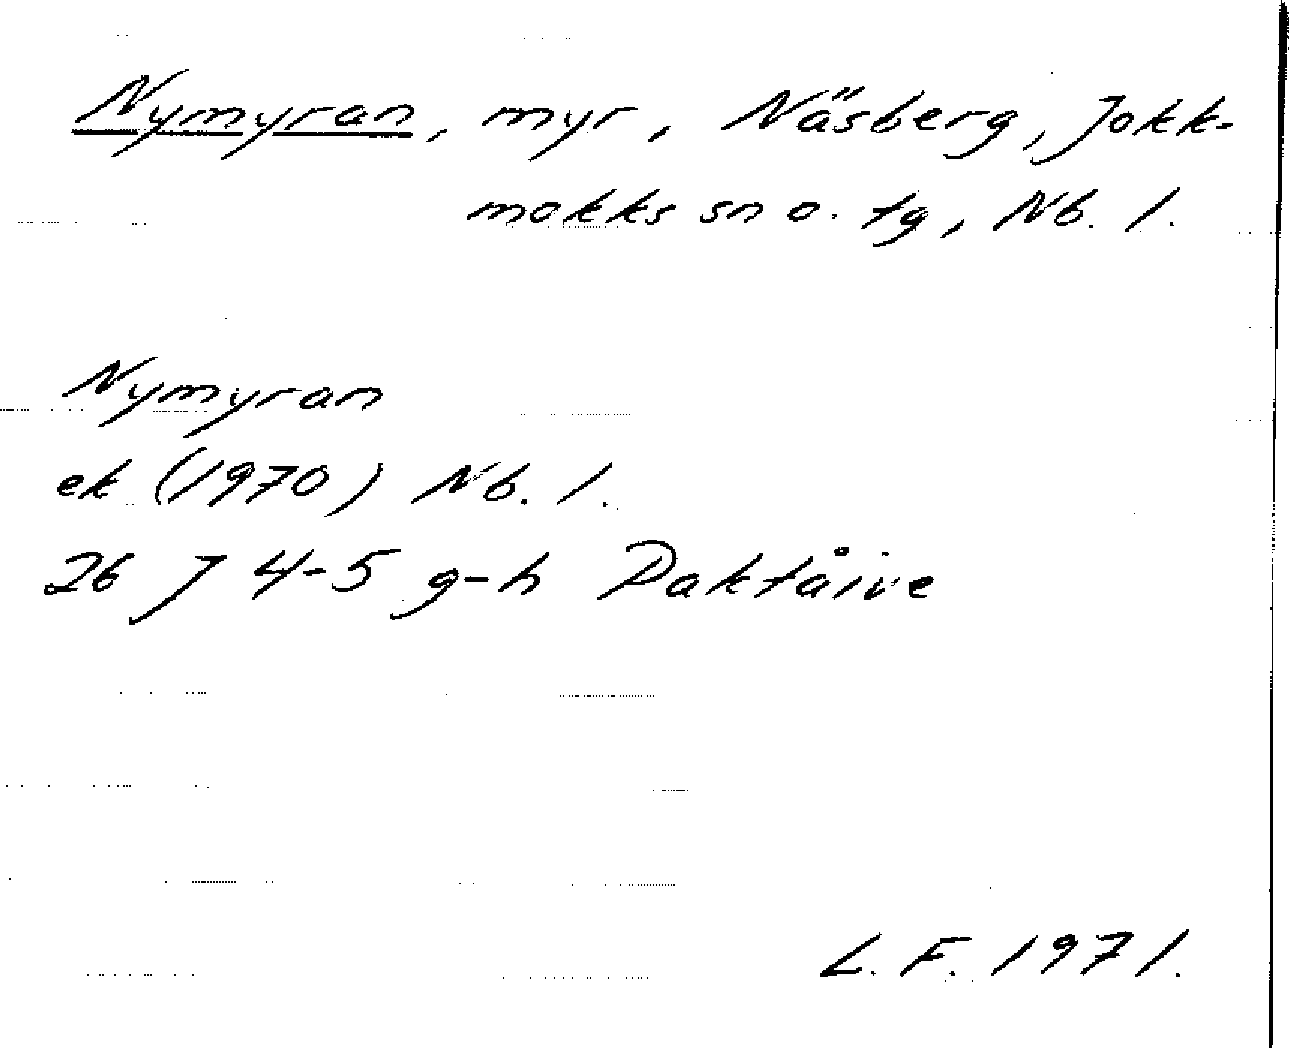 Nymyran, myr, Näsberg, Jokk-
mokks sn o. tg, Nb. l.
Nymyran
ek (1970) Nb. l.
26 J 4-5 g-h Daktåive
L. F. 1971.